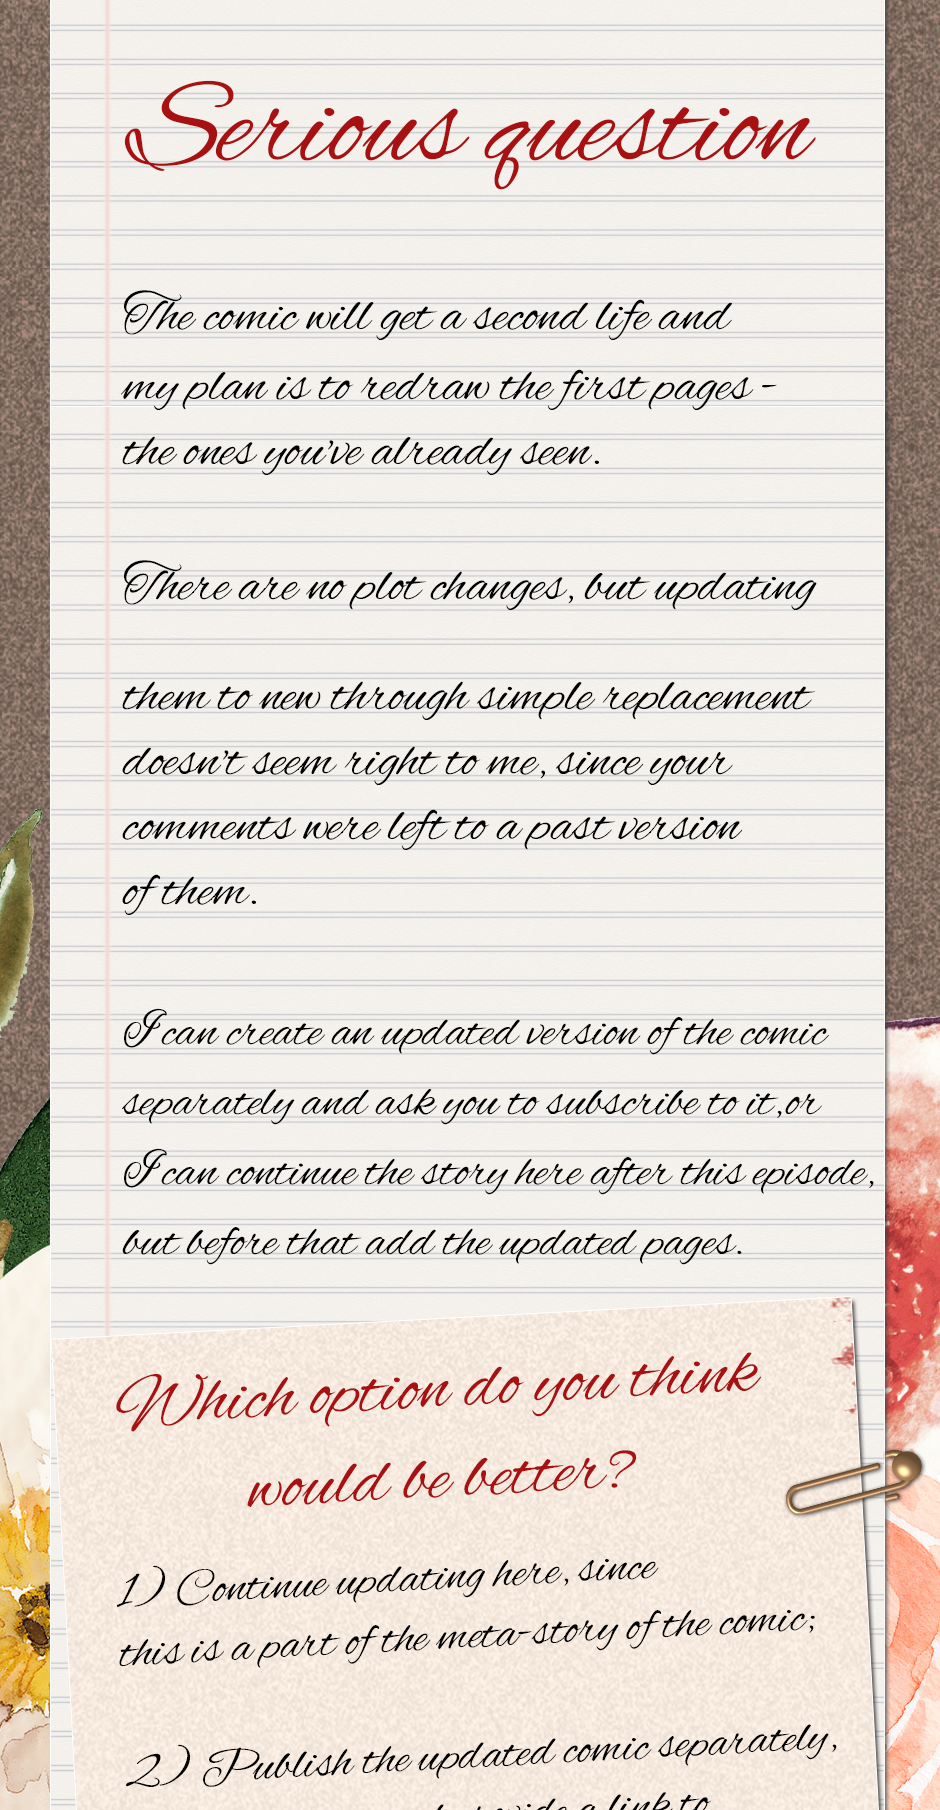 Serious question
The comic will get a second life and
my plan is to redraw the first pages -
the ones you've already seen.
There are no plot changes, but updating
them to new through simple replacement
doesn't seem right to me, since your
comments were left to a past version
of them.
I can create an updated version of the comic
separately and ask you to subscribe to it,or
I can continue the story here after this episode,
but before that add the updated pages.
Which option do you think
would be better?
1) Continue updating here, since
this is a part of the meta-story of the comic;
2) Publish the updated comic separately,
a link to